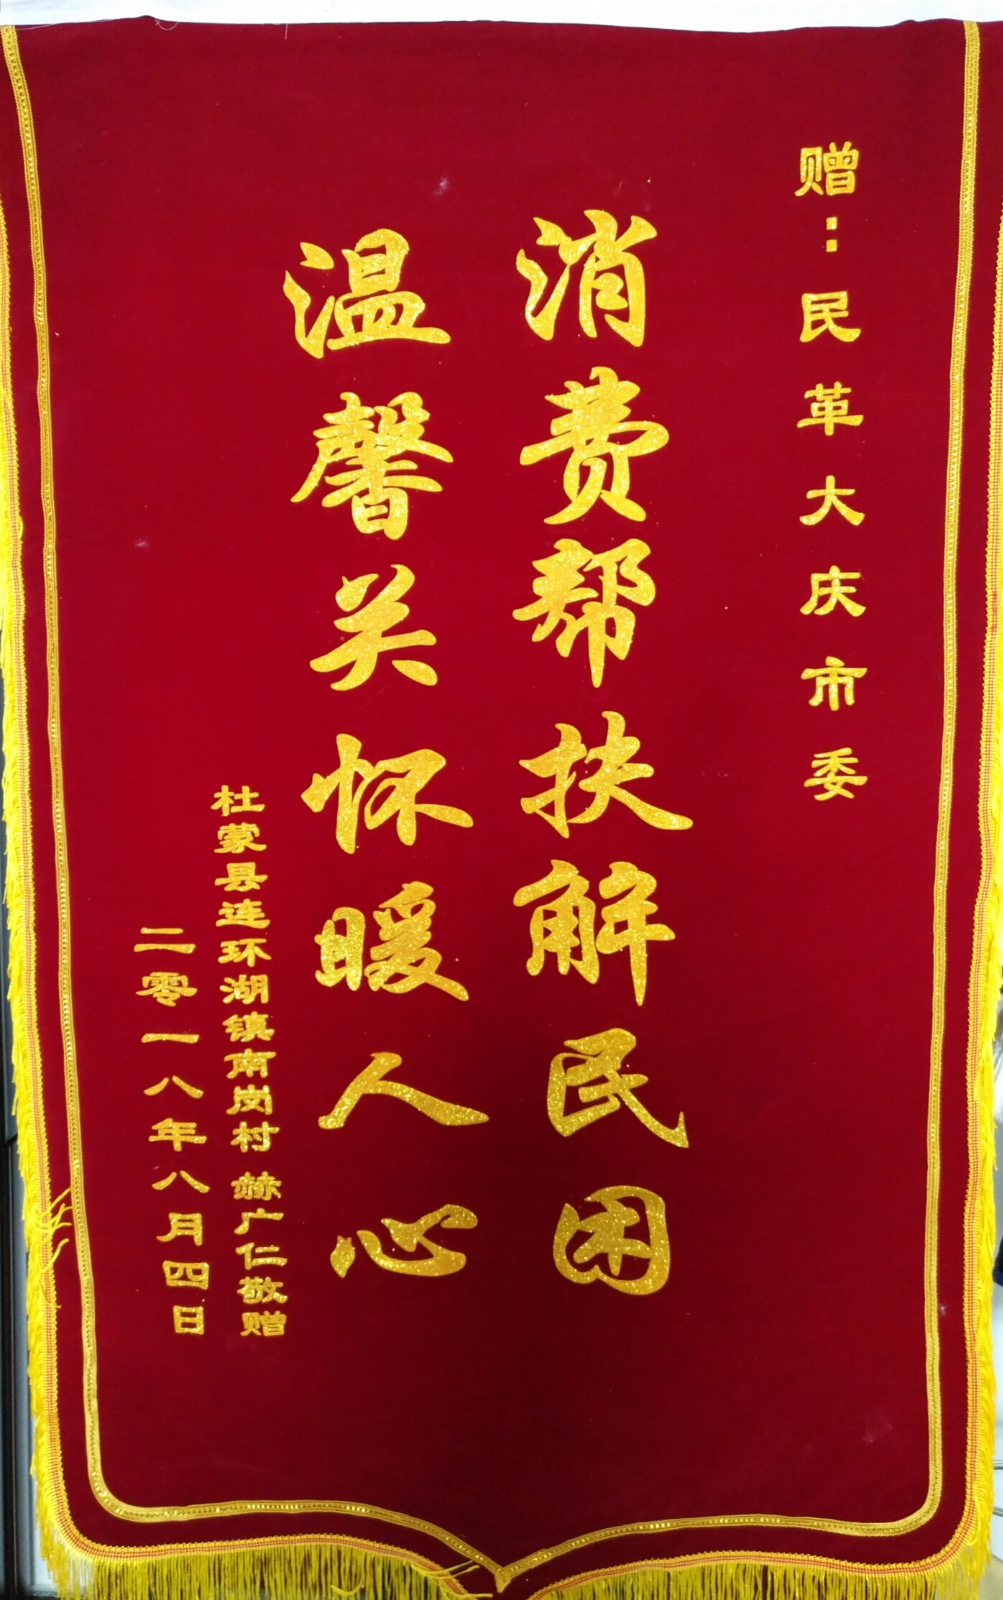 赠：民革大庆市委
消费帮扶解民困
温馨关怀暖人心
杜蒙县连环湖镇南岗村 赫广仁敬赠
二零一八年八月四日